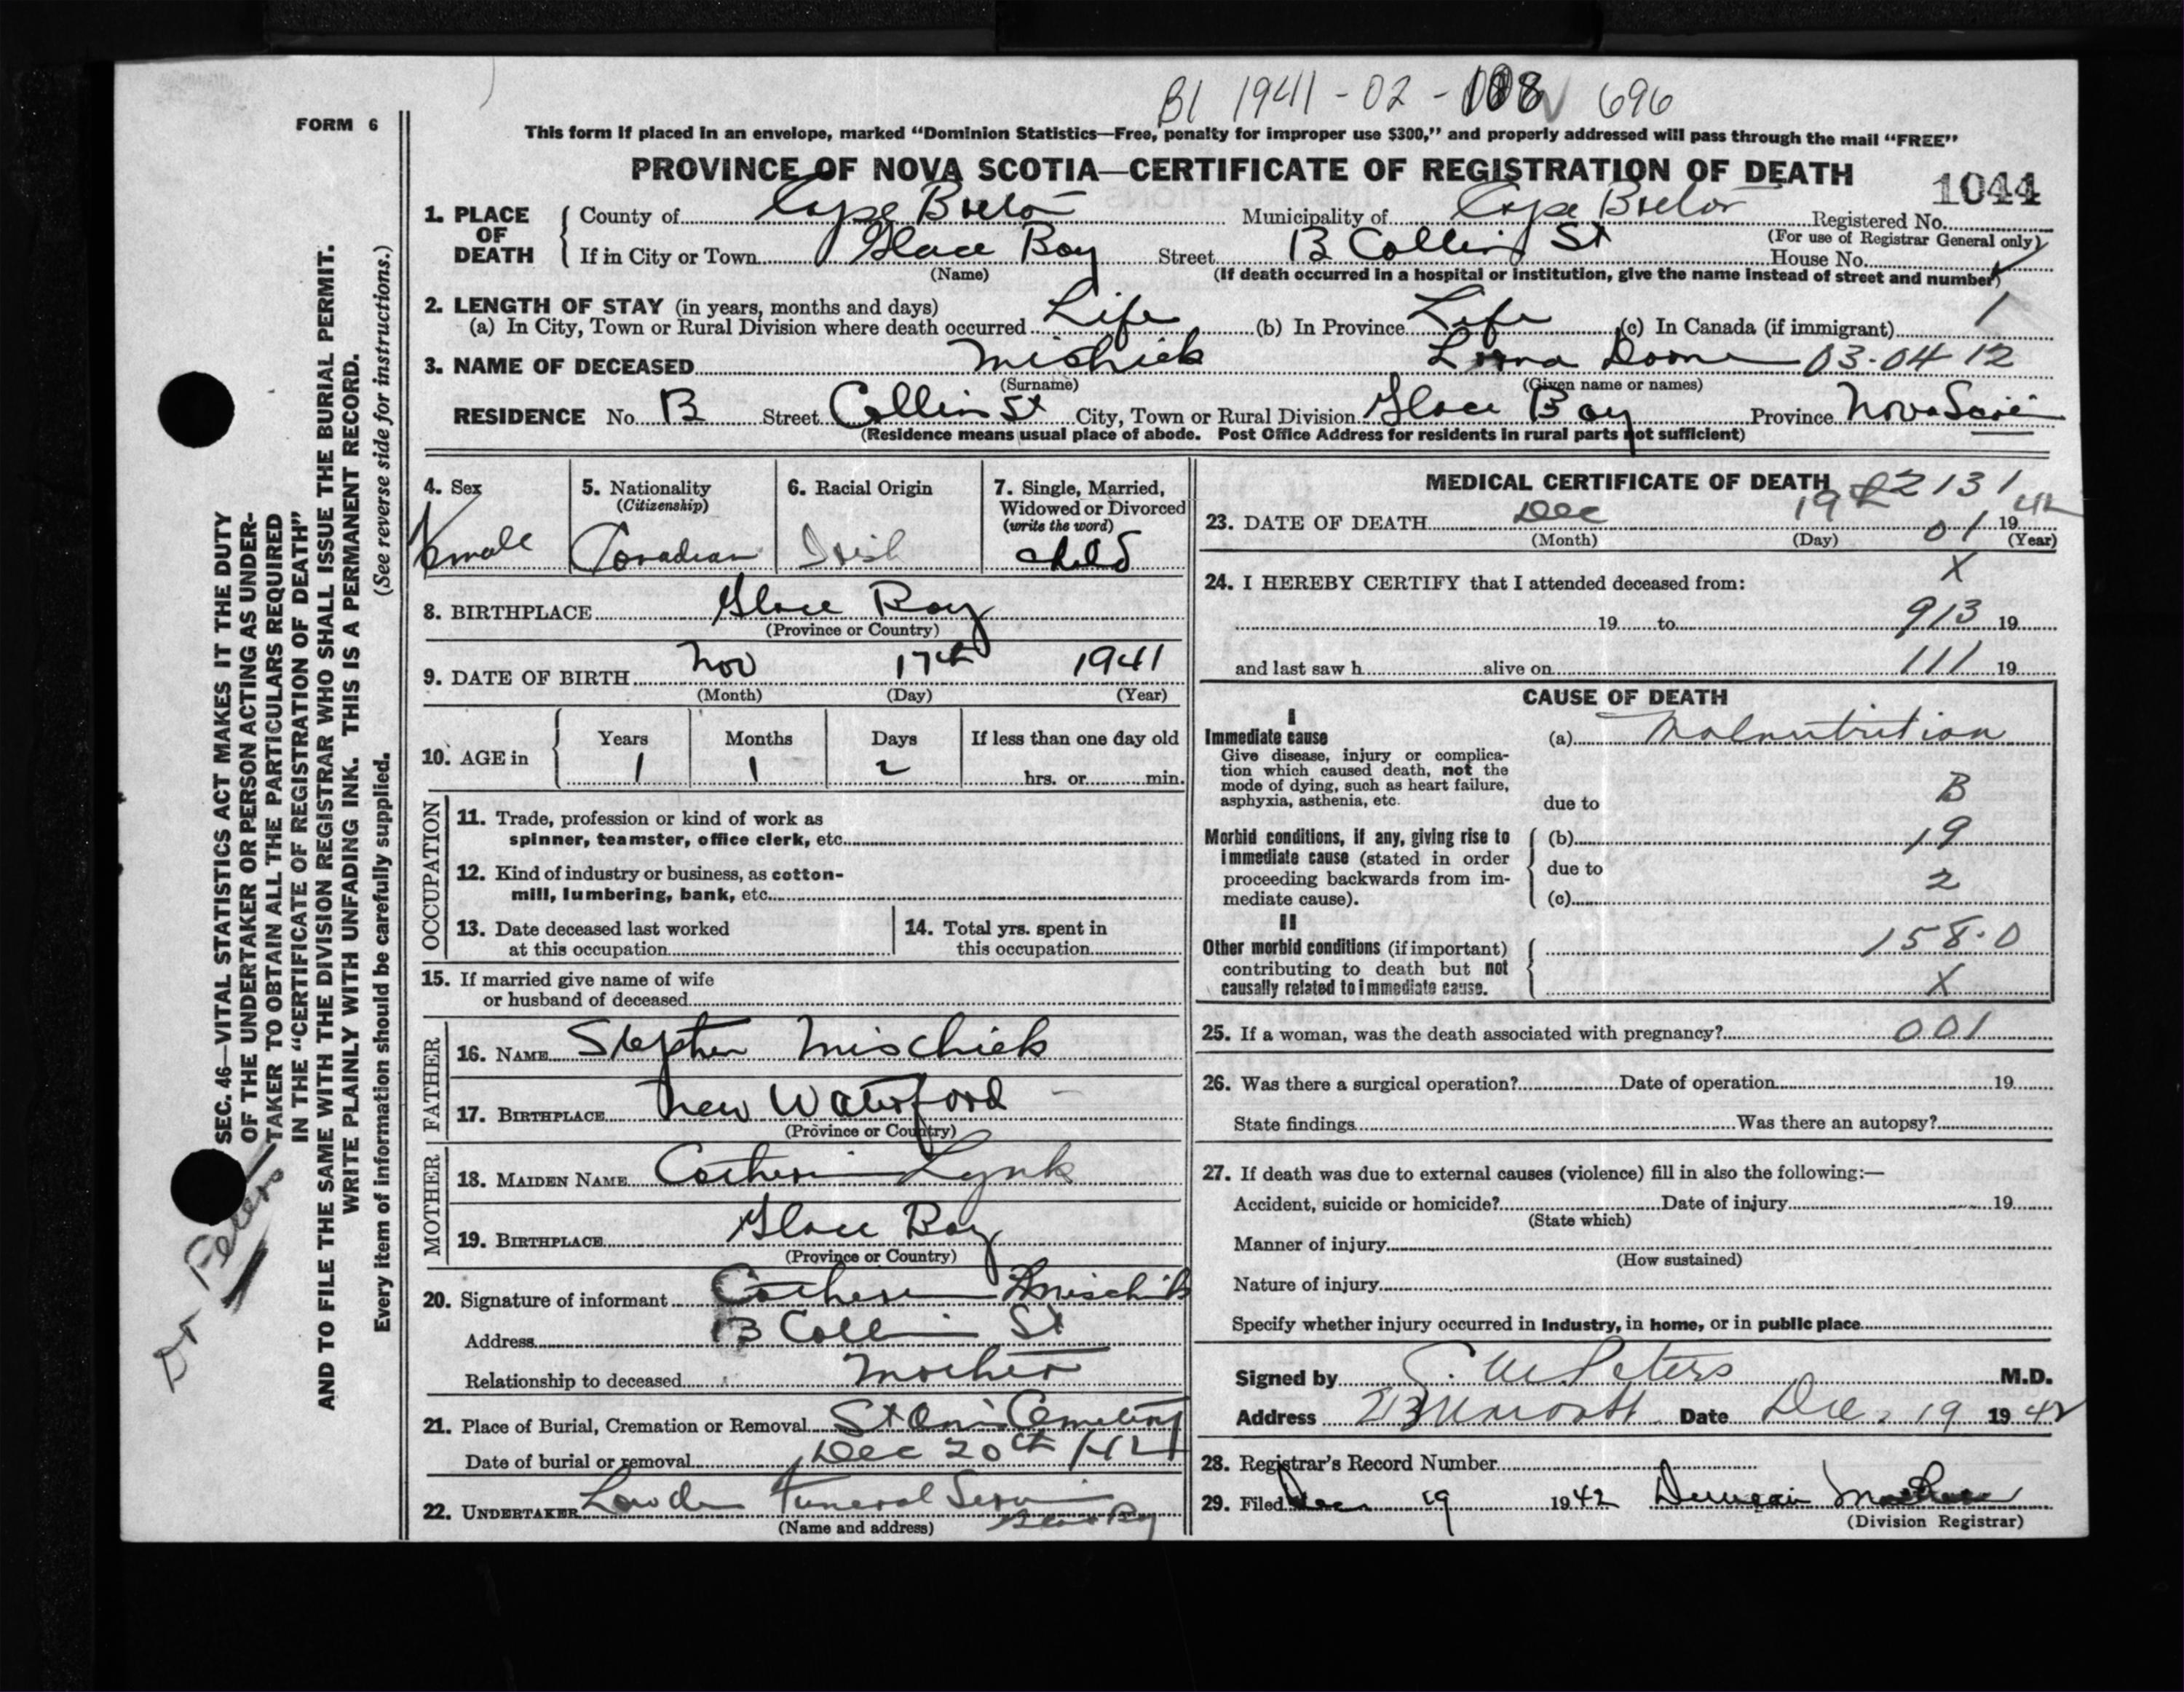 B1 1941-02-108 696
FORM 6
This form if placed in an envelope, marked "Dominion Statistics—Free, penalty for improper use $300," and properly addressed will pass through the mail "FREE"
PROVINCE OF NOVA SCOTIA—CERTIFICATE OF REGISTRATION OF DEATH
1044
1. PLACE OF DEATH { County of Cape Breton Municipality of Cape Breton Registered No.
(For use of Registrar General only)
If in City or Town Glace Bay Street B Collin St House No.
(Name) (If death occurred in a hospital or institution, give the name instead of street and number)
2. LENGTH OF STAY (in years, months and days)
(a) In City, Town or Rural Division where death occurred Life (b) In Province Life (c) In Canada (if immigrant) 1
3. NAME OF DECEASED Mishick Lorna Doone 03-04 12
(Surname) (Given name or names)
RESIDENCE No. B Street Collin St City, Town or Rural Division Glace Bay Province Nova Scotia
(Residence means usual place of abode. Post Office Address for residents in rural parts not sufficient)
4. Sex Female
5. Nationality (Citizenship) Canadian
6. Racial Origin Irish
7. Single, Married, Widowed or Divorced (write the word) child
8. BIRTHPLACE Glace Bay
(Province or Country)
9. DATE OF BIRTH Nov 17th 1941
(Month) (Day) (Year)
10. AGE in { Years 1 Months 1 Days 2 If less than one day old
hrs. or min.
OCCUPATION
11. Trade, profession or kind of work as
spinner, teamster, office clerk, etc.
12. Kind of industry or business, as cotton-
mill, lumbering, bank, etc.
13. Date deceased last worked
at this occupation
14. Total yrs. spent in
this occupation
15. If married give name of wife
or husband of deceased
FATHER
16. NAME Stephen Mischick
17. BIRTHPLACE New Waterford
(Province or Country)
MOTHER
18. MAIDEN NAME Catherine Lynk
19. BIRTHPLACE Glace Bay
(Province or Country)
20. Signature of informant Catherine Mischick
Address B Collin St
Relationship to deceased Mother
21. Place of Burial, Cremation or Removal St Ann's Cemetery
Date of burial or removal Dec 20th /42
22. UNDERTAKER Funeral Service
(Name and address) Glace Bay
MEDICAL CERTIFICATE OF DEATH
2131
23. DATE OF DEATH Dec 19th 01 1942
(Month) (Day) (Year)
24. I HEREBY CERTIFY that I attended deceased from: X
19 to 913 19
and last saw h alive on 111 19
CAUSE OF DEATH
I
Immediate cause (a) Malnutrition
Give disease, injury or complica-
tion which caused death, not the
mode of dying, such as heart failure,
asphyxia, asthenia, etc.
due to B
Morbid conditions, if any, giving rise to { (b) 19
immediate cause (stated in order
proceeding backwards from im- due to 2
mediate cause). (c)
II
Other morbid conditions (if important) { 158.0
contributing to death but not
causally related to immediate cause. X
25. If a woman, was the death associated with pregnancy? 001
26. Was there a surgical operation? Date of operation 19
State findings Was there an autopsy?
27. If death was due to external causes (violence) fill in also the following:—
Accident, suicide or homicide? Date of injury 19
(State which)
Manner of injury
(How sustained)
Nature of injury
Specify whether injury occurred in Industry, in home, or in public place
Signed by Peters M.D.
Address Date Dec. 19 1942
28. Registrar's Record Number
29. Filed Dec 19 1942 Duncan
(Division Registrar)
SEC. 46—VITAL STATISTICS ACT MAKES IT THE DUTY
OF THE UNDERTAKER OR PERSON ACTING AS UNDER-
TAKER TO OBTAIN ALL THE PARTICULARS REQUIRED
IN THE "CERTIFICATE OF REGISTRATION OF DEATH"
AND TO FILE THE SAME WITH THE DIVISION REGISTRAR WHO SHALL ISSUE THE BURIAL PERMIT.
WRITE PLAINLY WITH UNFADING INK. THIS IS A PERMANENT RECORD.
Every item of information should be carefully supplied. (See reverse side for instructions.)
Dr Peters